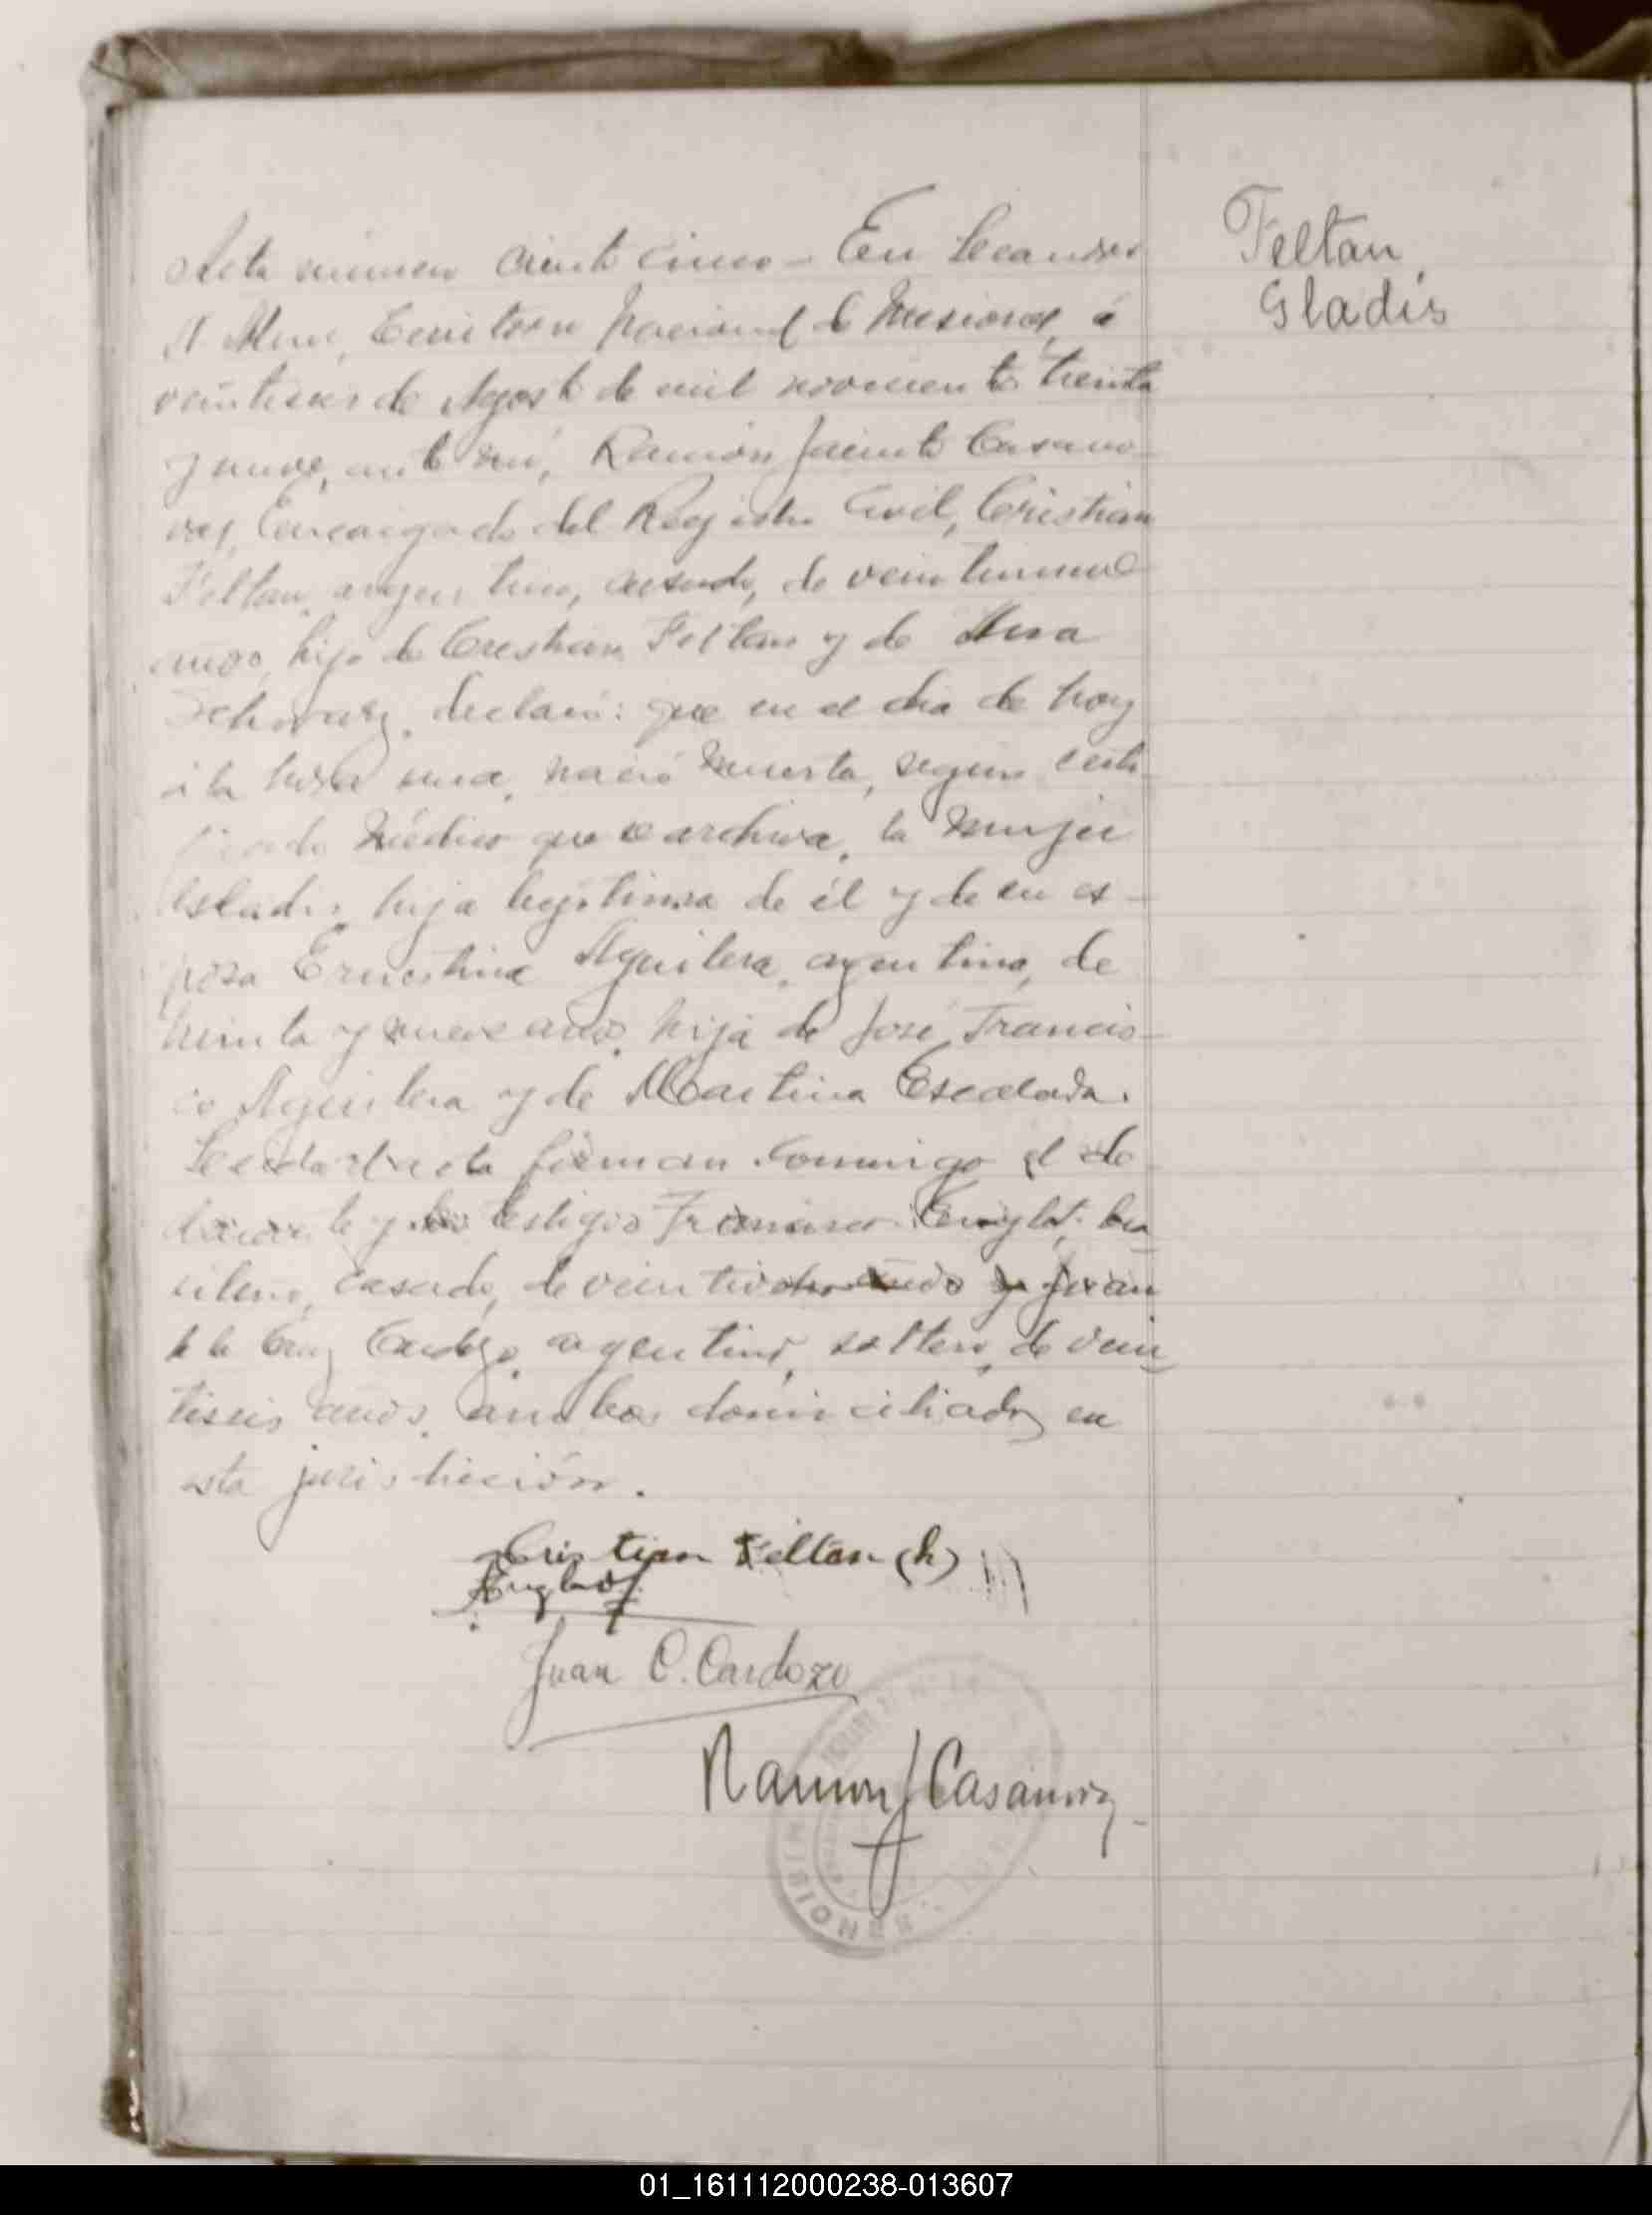 Acta número ciento cinco - En Leandro
N. Alem, Territorio Nacional de Misiones, á
veintiseis de Agosto de mil novecientos treinta
y nueve, ante mí, Ramón Jacinto Casano-
vas, Encargado del Registro Civil, Cristian
Feltan, argentino, casado, de veintinueve
años, hijo de Cristian Feltan y de Ana
Schwarz, declaró: que en el dia de hoy
á la hora una, nació muerta, segun certi-
ficado médico que se archiva, la mujer
Gladis, hija legitima de él y de su es-
posa Ernestina Aguilera, argentina, de
treinta y nueve años, hija de José Francis-
co Aguilera y de Martina Escalada.
Leida el acta firman conmigo el de-
clarante y los testigos Francisco bra-
sileño, casado, de años y Juan
de la Cruz Cardozo, argentino, soltero, de vein-
tiseis años, ambos domiciliados en
esta jurisdicción.
Cristian Feltan (h)
Juan C. Cardozo
Ramon J Casanovas
Feltan,
Gladis
MISIONES
01_161112000238-013607